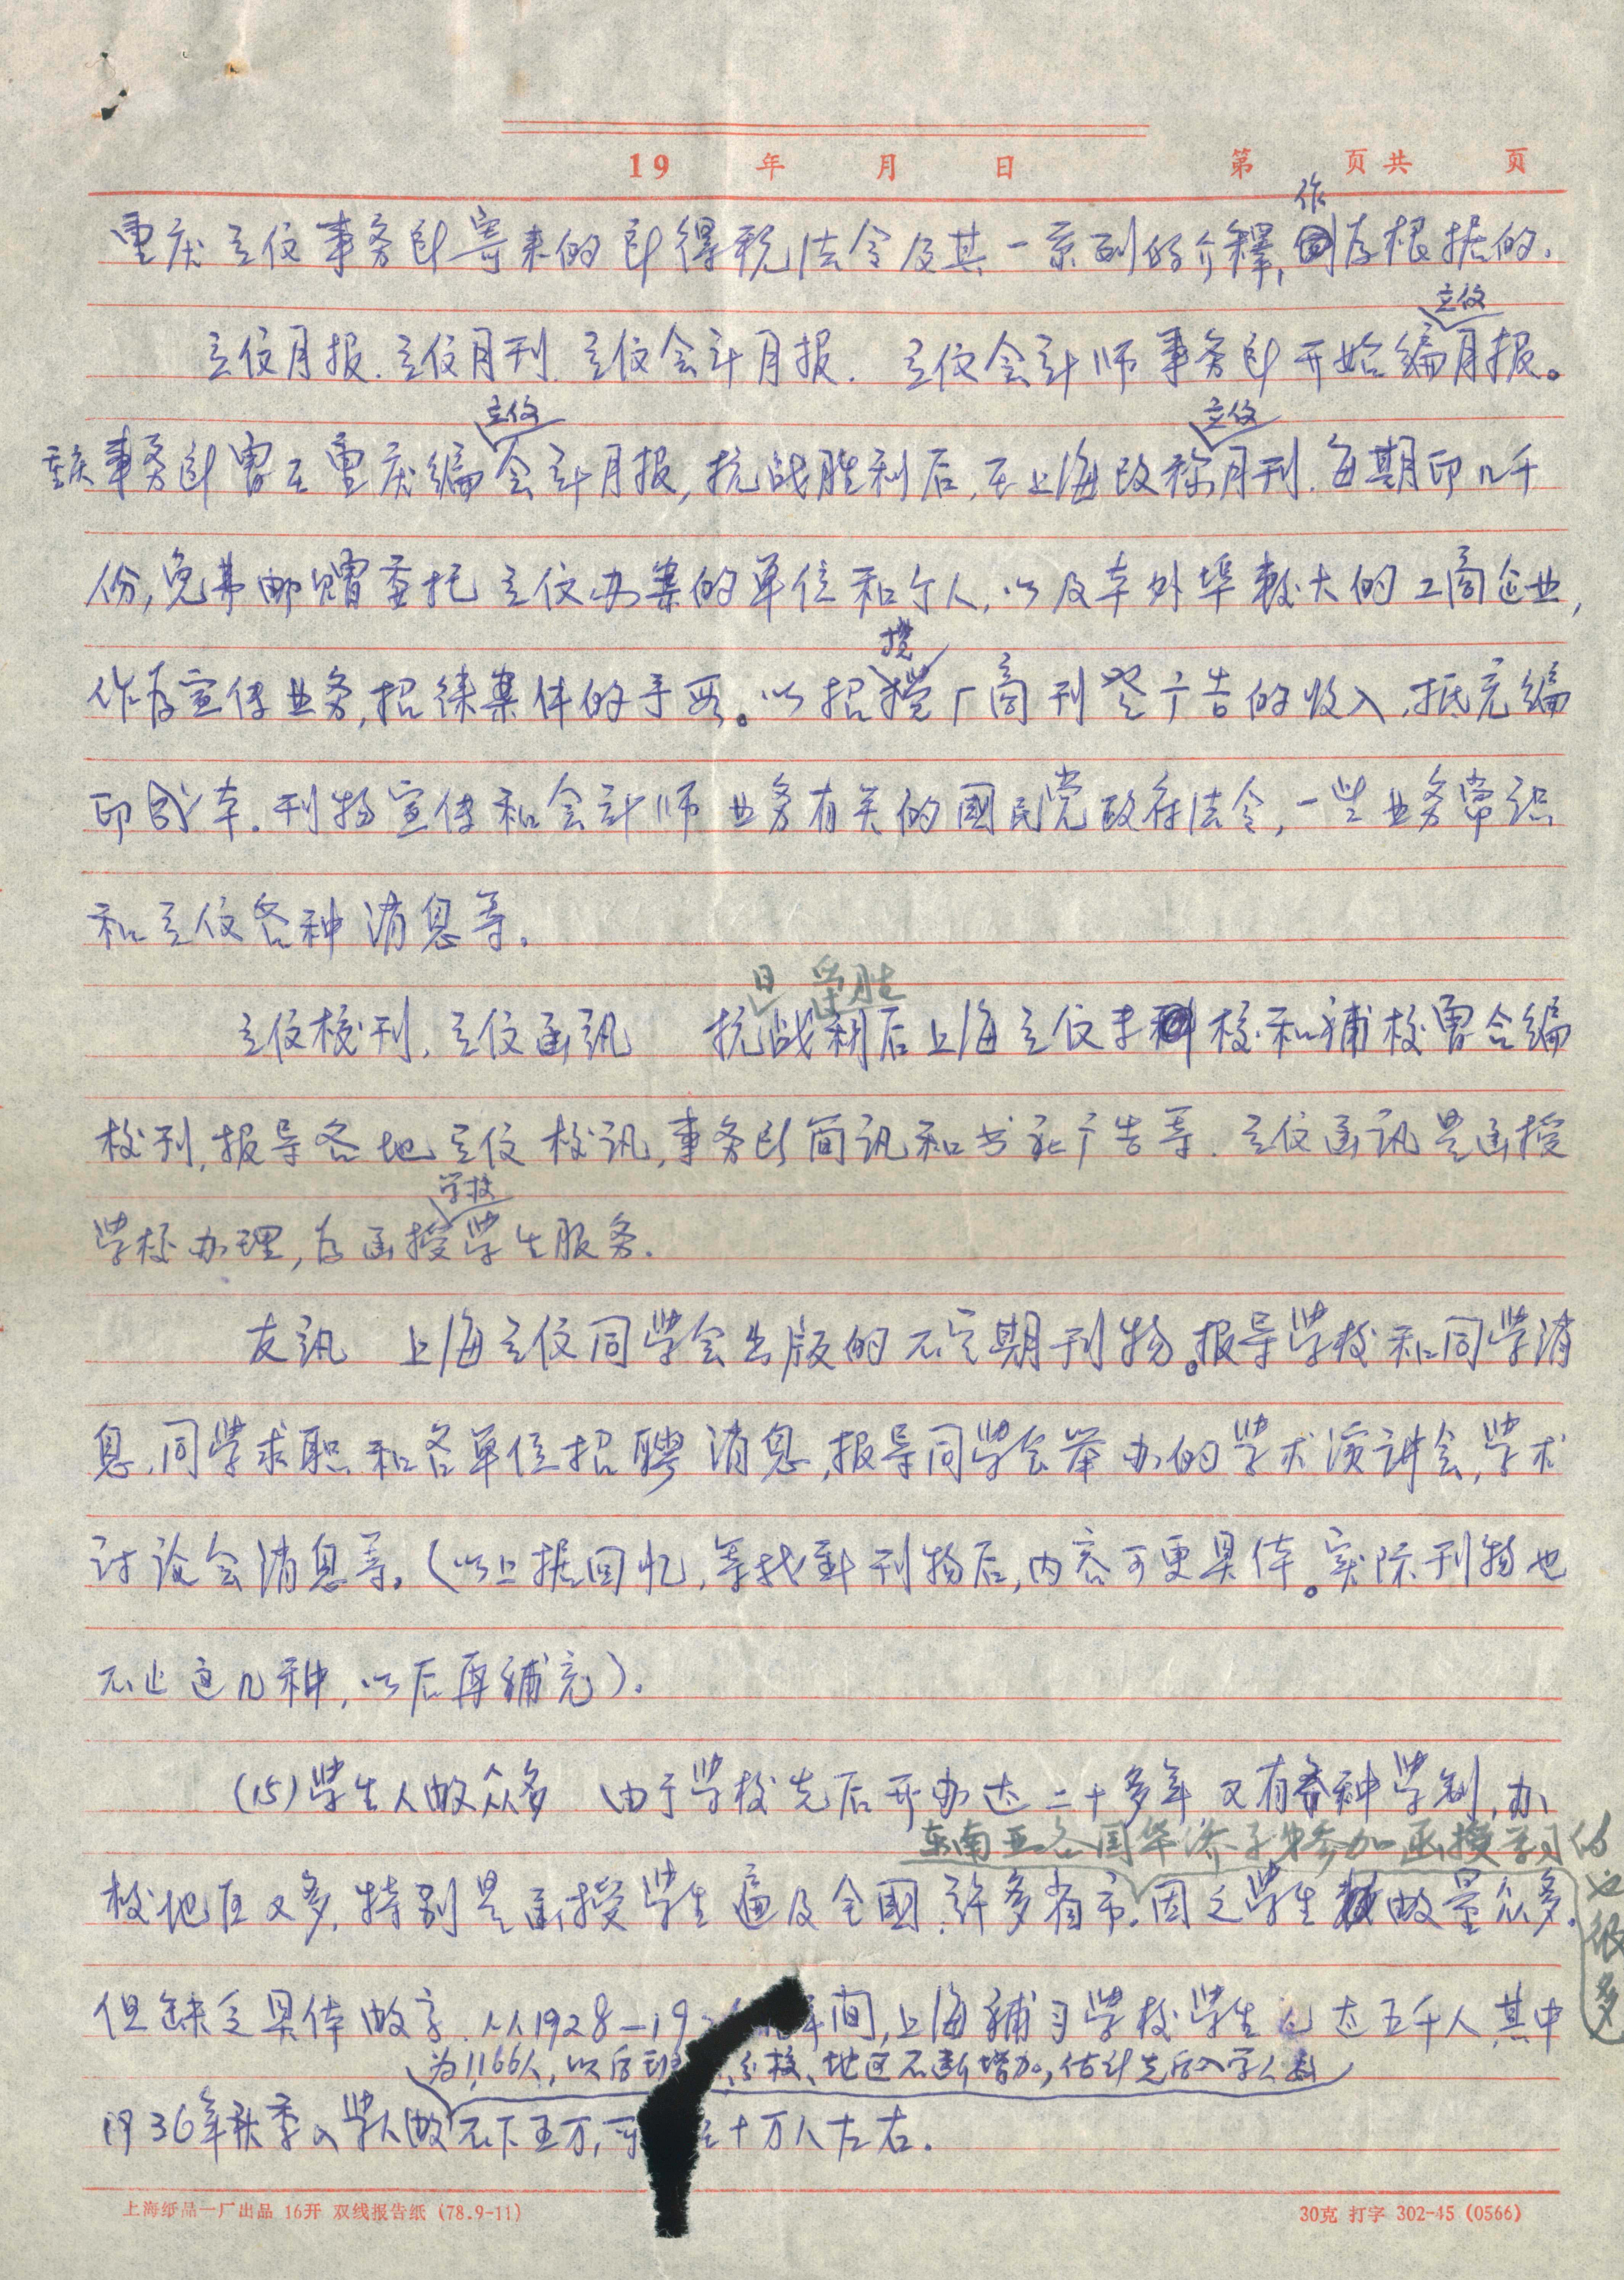 19 年 月 日 第 页共 页
作
重庆立信事务所寄来的所得税法令及其一系列的介釋,为根据的.
立信
立信月报.立信月刊.立信会计月报. 立信会计师事务所开始编月报。
立信 立信
重庆事务所曾在重庆编会计月报,抗战胜利后,在上海改称月刊.每期印几千
份,免费邮赠委托立信办案的单位和个人,以及本外埠较大的工商企业,
揽
作为宣传业务,招徕案件的手段。以招揽厂商刊登广告的收入,抵充编
印成本。刊物宣传和会计师业务有关的國民党政府法令,一些业务常识
和立信各种消息等。
日 胜
立信校刊.立信函讯 抗战利后上海立信专科校和補校曾合编
校刊,报导各地立信校讯,事务所简讯和书社广告等.立信函讯是函授
学校
学校办理,为函授学生服务.
友讯 上海立信同学会出版的不定期刊物。报导学校和同学消
息.同学求职和各单位招聘消息,报导同学会举办的学术演讲会,学术
讨论会消息等。(以上据回忆,等找到刊物后,内容可更具体。实际刊物也
不止这几种,以后再補充).
(15)学生人数众多 由于学校先后开办达二十多年又有各种学制,办
东南亚各国华侨子弟参加函授学习的也很多
校地区又多,特别是函授学生遍及全國.許多省市.因之学生数量众多.
但缺乏具体数字.从1928—19 年间,上海補习学校学生已达五千人,其中
为1,166人,以后 校、地区不断增加,估计先后入学人数
1936年秋季入学人数不下五万, 十万人左右.
上海纸品一厂出品 16开 双线报告纸 (78.9-11) 30克 打字 302-45 (0566)